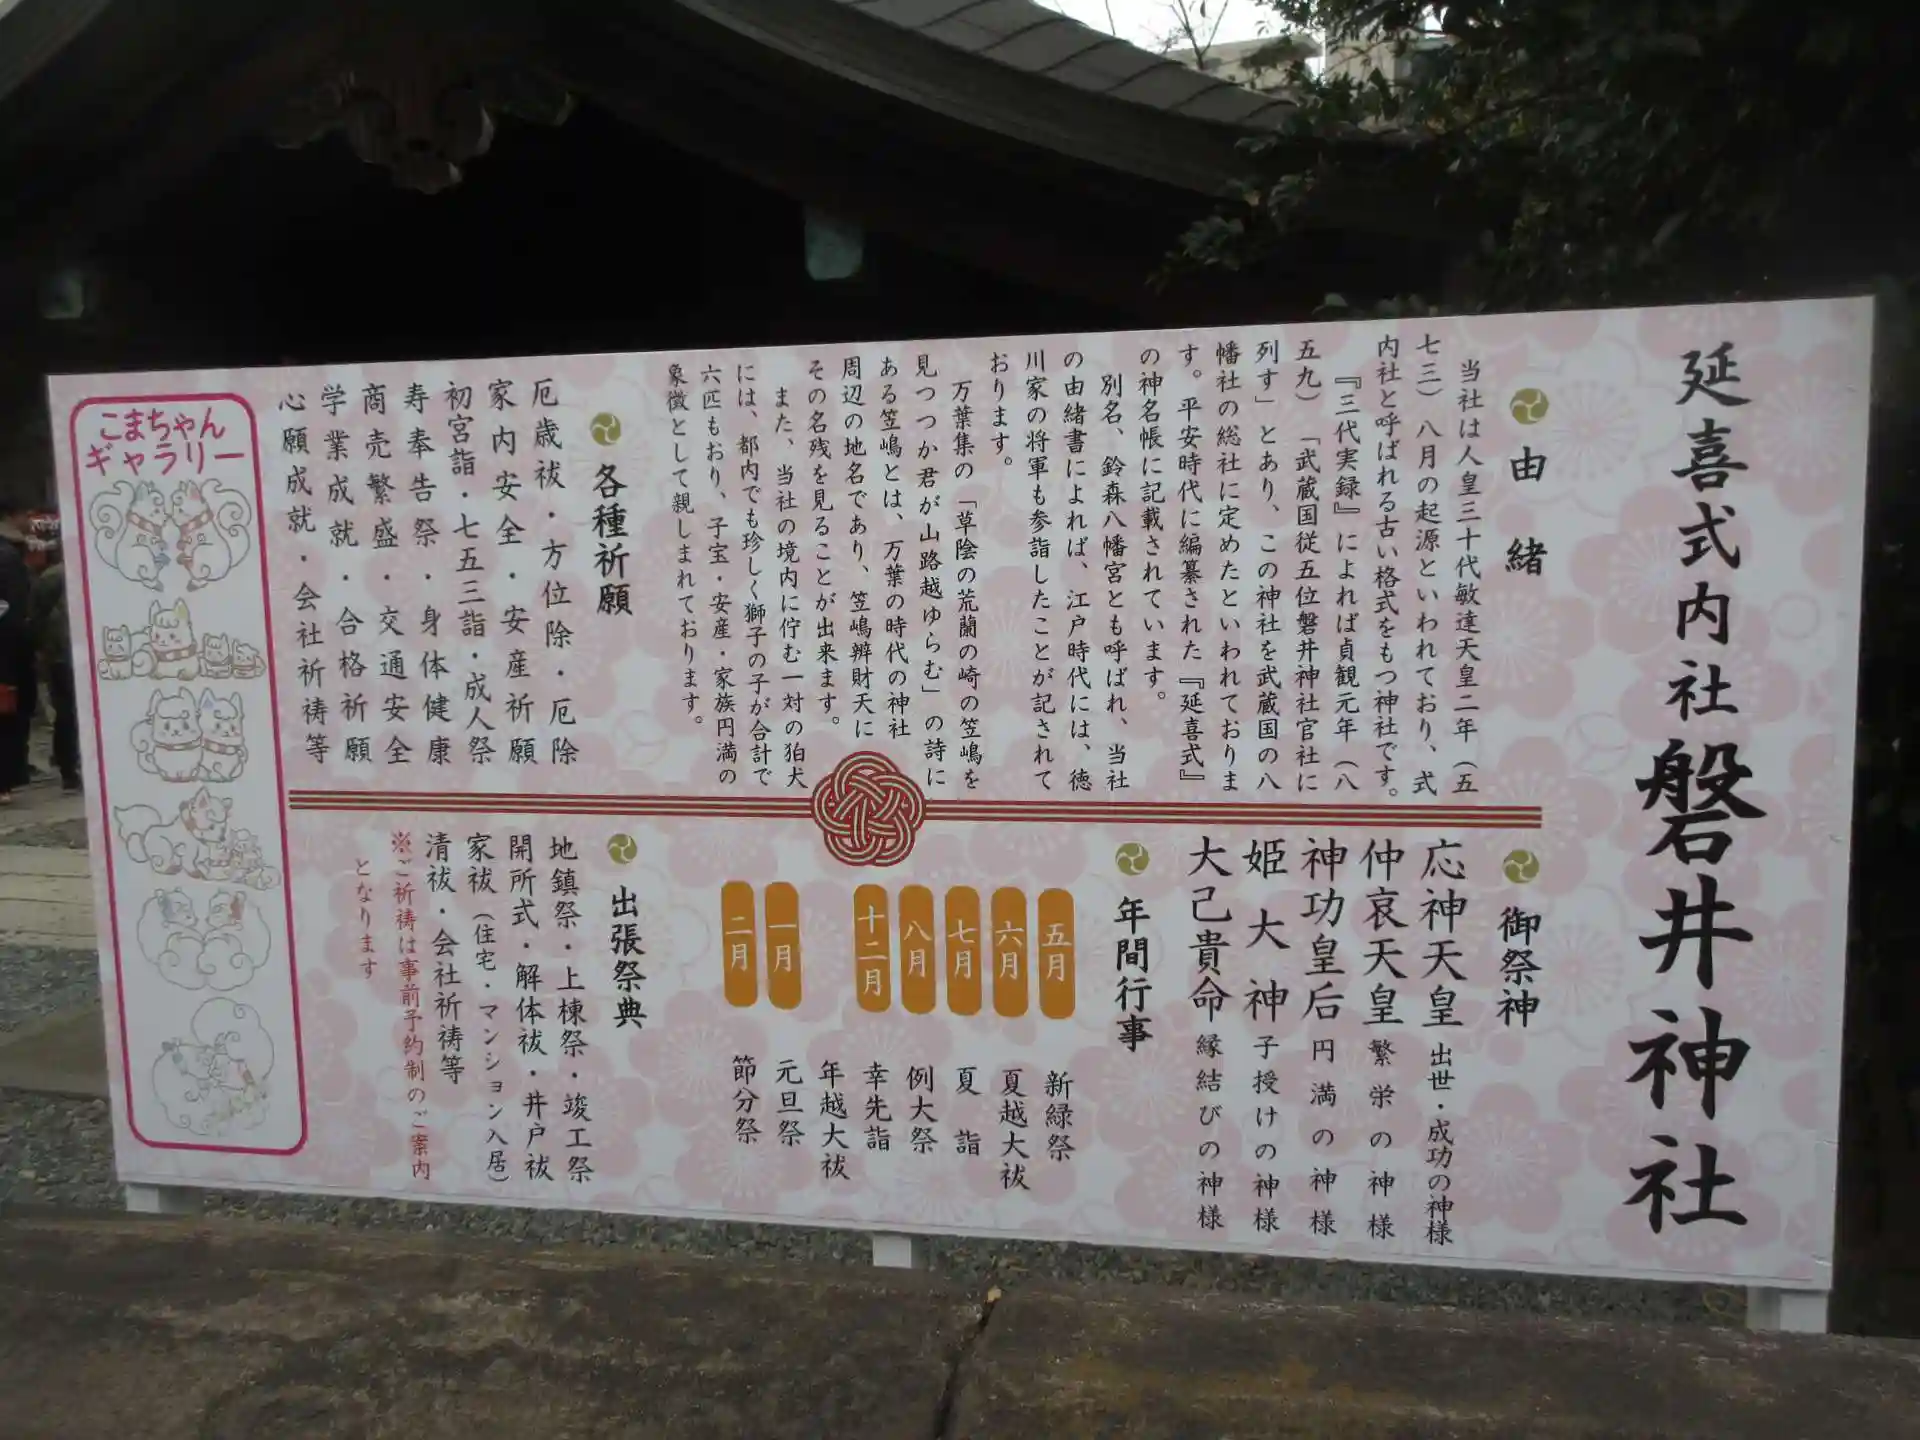 延喜式内社磐井神社
由緒
当社は人皇三十代敏達天皇二年（五
七三）八月の起源といわれており、式
内社と呼ばれる古い格式をもつ神社です。
『三代実録』によれば貞観元年（八
五九）「武蔵国従五位磐井神社官社に
列す」とあり、この神社を武蔵国の八
幡社の総社に定めたといわれておりま
す。平安時代に編纂された『延喜式』
の神名帳に記載されています。
別名、鈴森八幡宮とも呼ばれ、当社
の由緒書によれば、江戸時代には、徳
川家の将軍も参詣したことが記されて
おります。
万葉集の「草陰の荒藺の崎の笠嶋を
見つつか君が山路越ゆらむ」の詩に
ある笠嶋とは、万葉の時代の神社
周辺の地名であり、笠嶋辨財天に
その名残を見ることが出来ます。
また、当社の境内に佇む一対の狛犬
には、都内でも珍しく獅子の子が合計で
六匹もおり、子宝・安産・家族円満の
象徴として親しまれております。
各種祈願
厄歳祓・方位除・厄除
家内安全・安産祈願
初宮詣・七五三詣・成人祭
寿奉告祭・身体健康
商売繁盛・交通安全
学業成就・合格祈願
心願成就・会社祈祷等
御祭神
応神天皇 出世・成功の神様
仲哀天皇 繁栄の神様
神功皇后 円満の神様
姫大神 子授けの神様
大己貴命 縁結びの神様
年間行事
五月 新緑祭
六月 夏越大祓
七月 夏詣
八月 例大祭
十二月 幸先詣
年越大祓
一月 元旦祭
二月 節分祭
出張祭典
地鎮祭・上棟祭・竣工祭
開所式・解体祓・井戸祓
家祓（住宅・マンション入居）
清祓・会社祈祷等
※ご祈祷は事前予約制のご案内
となります
こまちゃん
ギャラリー